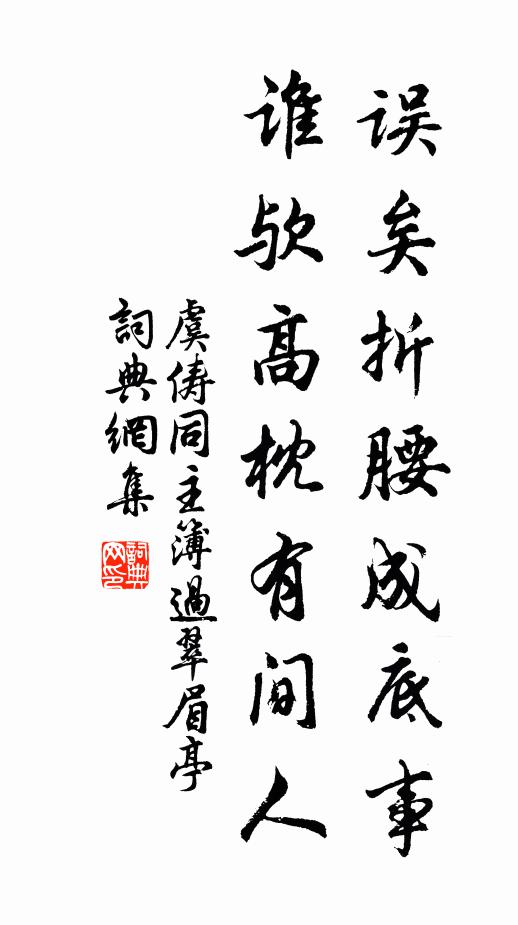 误矣折腰成底事
谁欤高枕有间人
虞俦同主簿過翠眉亭
詞典網集
詞典网印